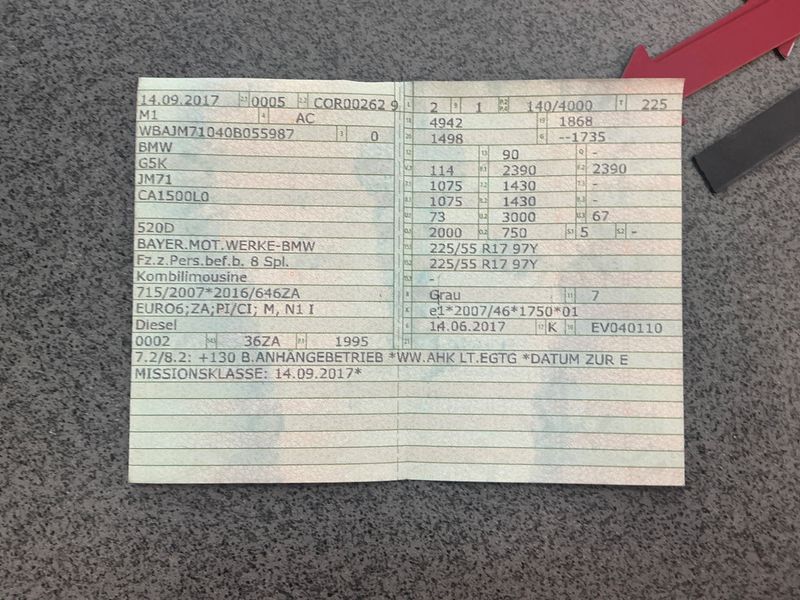 14.09.2017 0005 COR00262 9
M1 AC
WBAJM71040B055987 0
BMW
G5K
JM71
CA1500L0
520D
BAYER.MOT.WERKE-BMW
Fz.z.Pers.bef.b. 8 Spl.
Kombilimousine
715/2007*2016/646ZA
EURO6;ZA;PI/CI; M, N1 I
Diesel
0002 36ZA 1995
2 1 140/4000 225
4942 1868
1498 --1735
90 -
114 2390 2390
1075 1430 -
1075 1430 -
73 3000 67
2000 750 5 -
225/55 R17 97Y
225/55 R17 97Y
-
Grau 7
e1*2007/46*1750*01
14.06.2017 K EV040110
7.2/8.2: +130 B.ANHÄNGEBETRIEB *WW.AHK LT.EGTG *DATUM ZUR E
MISSIONSKLASSE: 14.09.2017*